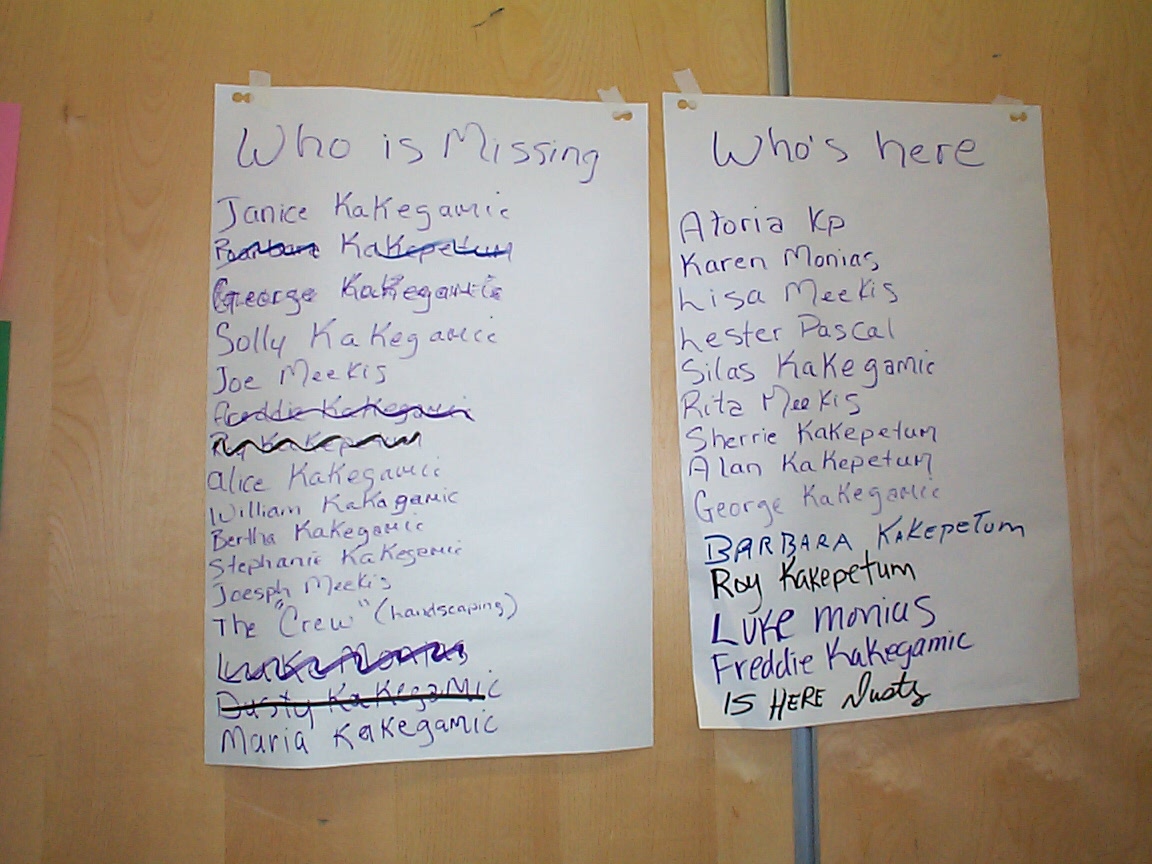 Who is Missing
Janice Kakegamic
Barbara Kakepetum
George Kakegamic
Solly Kakegamic
Joe Meekis
Freddie Kakegamic
Roy Kakepetum
Alice Kakegamic
William Kakagamic
Bertha Kakegamic
Stephanie Kakegamic
Joesph Meekis
The "Crew" (Landscaping)
Luke Monias
Dusty Kakegamic
Maria Kakegamic
Who's here
Atoria Kp
Karen Monias
Lisa Meekis
Lester Pascal
Silas Kakegamic
Rita Meekis
Sherrie Kakepetum
Alan Kakepetum
George Kakegamic
BARBARA KAKEPETUM
Roy Kakepetum
Luke Monias
Freddie Kakegamic
IS HERE Dusty